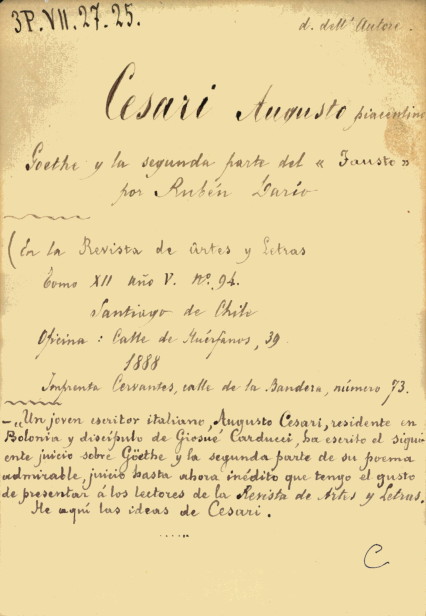 3P.VII.27.25.
d. dell'Autore.
Cesari Augusto piacentino
Goethe y la segunda parte del « Fausto »
por Rubén Darío
(En la Revista de Artes y Letras
Tomo XII Año V. Nº. 94.
Santiago de Chile
Oficina : Calle de Huérfanos, 39
1888
Imprenta Cervantes, calle de la Bandera, número 73.
—„Un joven escritor italiano, Augusto Cesari, residente en
Bolonia y discípulo de Giosué Carducci, ha escrito el sigui-
ente juicio sobre Göethe y la segunda parte de su poema
admirable, juicio hasta ahora inédito que tengo el gusto
de presentar á los lectores de la Revista de Artes y Letras.
He aquí las ideas de Cesari.
.....
C